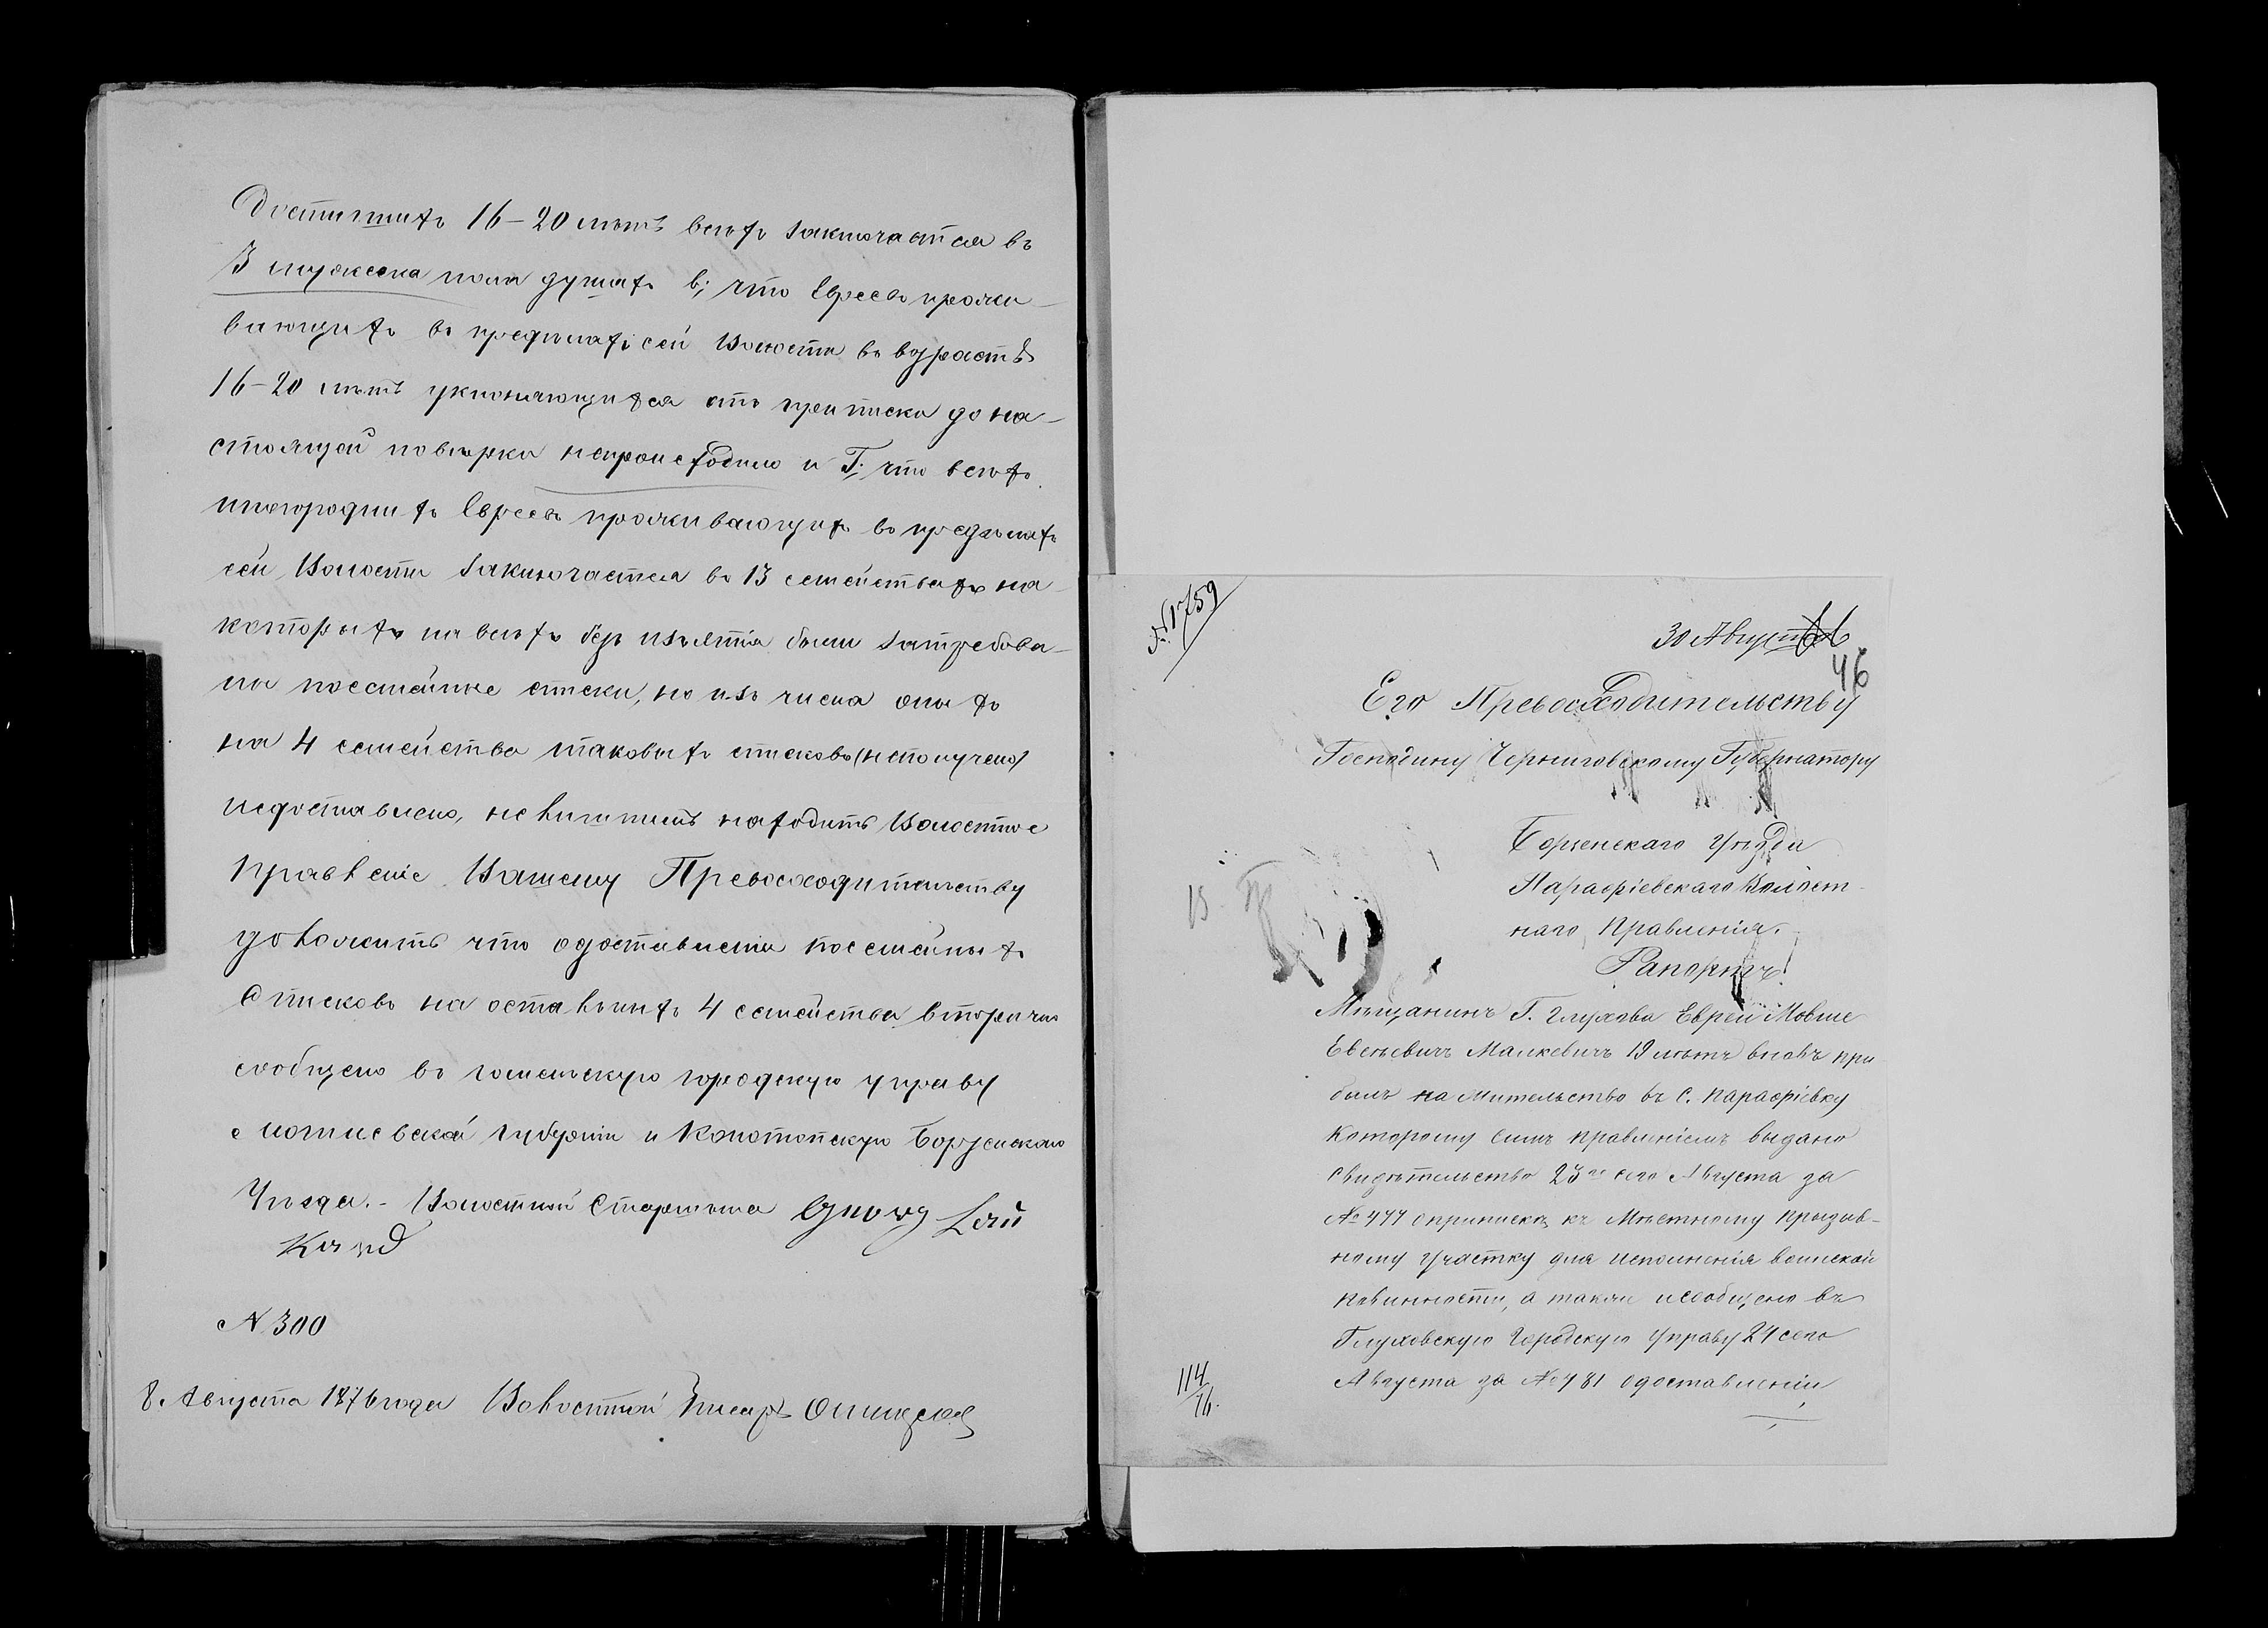 Достигшихъ 16-20 лѣтъ всѣхъ заключается въ
3 мужеска пола душахъ В; что Евреевъ прожи-
вающихъ въ предѣлахъ сей Волости въ взрастѣ
16-20 лѣтъ уклоняющихся отъ приписки до на-
стоящей повѣрки непроисходило и Г; что всѣхъ
иногороднихъ Евреевъ проживающихъ въ предѣлахъ
сей Волости заключается въ 13 семействахъ на
которыхъ на всѣхъ безъ изъятія были затребова-
ны посемейные списки, но изъ числа оныхъ
на 4 семейства таковыхъ списковъ (неполучено)
недоставлено, не
находитъ Волостное
Правленіе Вашему Превосходительству
доложить что одоставленіи посемейныхъ
Списковъ на остальныхъ 4 семейства вторично
сообщено въ гомельскую городскую управу
Могилевской губерніи и Конотопскую Борзенскаго
Уѣзда.- Волостной Старшина
№ 300
8. Августа 1876 года Волостной Писарь
№ 1759
30 Августа
46
Его Превосходительству
Господину Черниговскому Губернатору
Борзенскаго Уѣзда
Парафіевскаго Волост-
наго Правленія.
Рапортъ.
Мѣщанинъ Г. Глухова Еврей Мовше
Евелевичъ Малкевичъ 19 лѣтъ вновь при
былъ на жительство въ С. Парафіевку
Которому Симъ правленіемъ выдано
Свидѣтельство 23го сего Августа за
№ 477 оприпискѣ къ Мѣстному призыв-
ному Участку для исполненія воинской
повинности, а также исообщено въ
Глуховскую Городскую Управу 24 сего
Августа за № 481 одоставленіи
114/76.